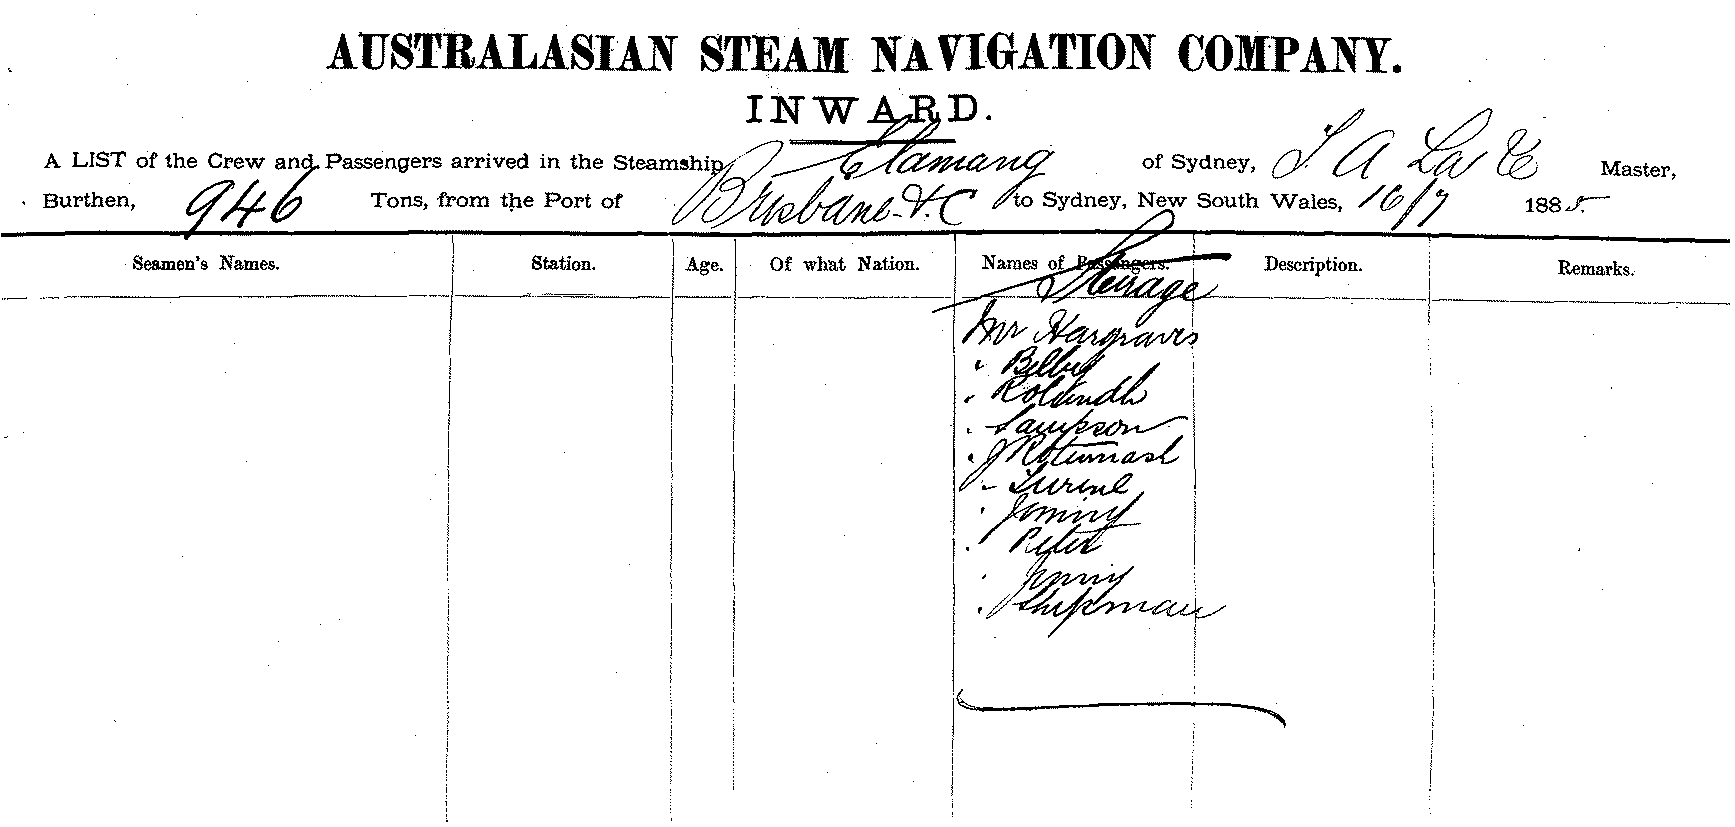 AUSTRALASIAN STEAM NAVIGATION COMPANY.
INWARD.
A LIST of the Crew and Passengers arrived in the Steamship Elamang of Sydney, J A Lake Master,
Burthen, 946 Tons, from the Port of Brisbane &C to Sydney, New South Wales, 16/7 1885
Seamen's Names. Station. Age. Of what Nation. Names of Passengers. Description. Remarks.
Steerage
Mr Hargraves
" Bilby
"
" Sampson
" J
"
" Jimmy
" Peter
" Jimmy
" Shipman